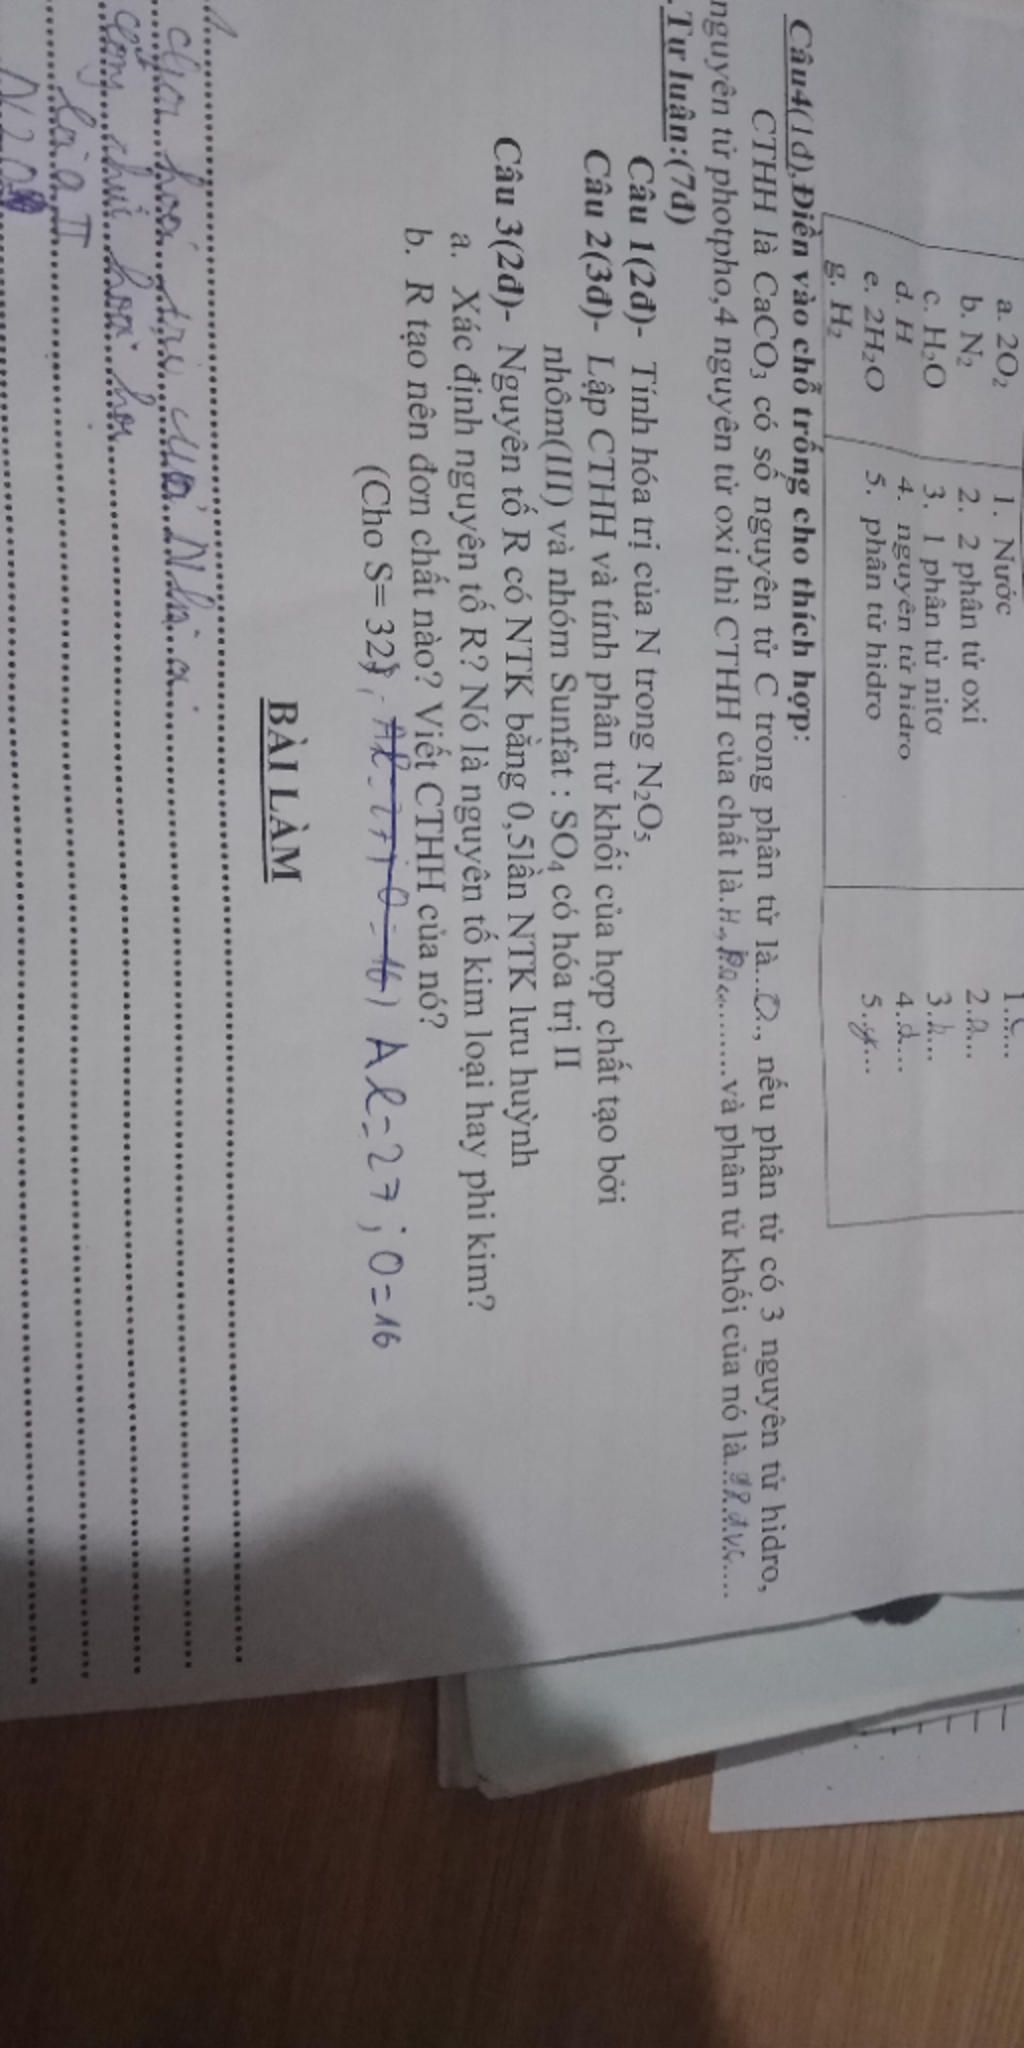 a. 2O₂
b. N₂
c. H₂O
d. H
e. 2H₂O
g. H₂
1. Nước
2. 2 phân tử oxi
3. 1 phân tử nitơ
4. nguyên tử hidro
5. phân tử hidro
1.c...
2.a...
3.b...
4.d....
5.g...
Câu4(1đ).Điền vào chỗ trống cho thích hợp:
CTHH là CaCO₃ có số nguyên tử C trong phân tử là......, nếu phân tử có 3 nguyên tử hidro,
nguyên tử photpho,4 nguyên tử oxi thì CTHH của chất là...........và phân tử khối của nó là...98.đvC....
.Tự luận:(7đ)
Câu 1(2đ)- Tính hóa trị của N trong N₂O₅
Câu 2(3đ)- Lập CTHH và tính phân tử khối của hợp chất tạo bởi
nhôm(III) và nhóm Sunfat : SO₄ có hóa trị II
Câu 3(2đ)- Nguyên tố R có NTK bằng 0,5lần NTK lưu huỳnh
a. Xác định nguyên tố R? Nó là nguyên tố kim loại hay phi kim?
b. R tạo nên đơn chất nào? Viết CTHH của nó?
(Cho S= 32; Al=27; O=16) Al=27; O=16
BÀI LÀM
hoá trị của N là a
là a II